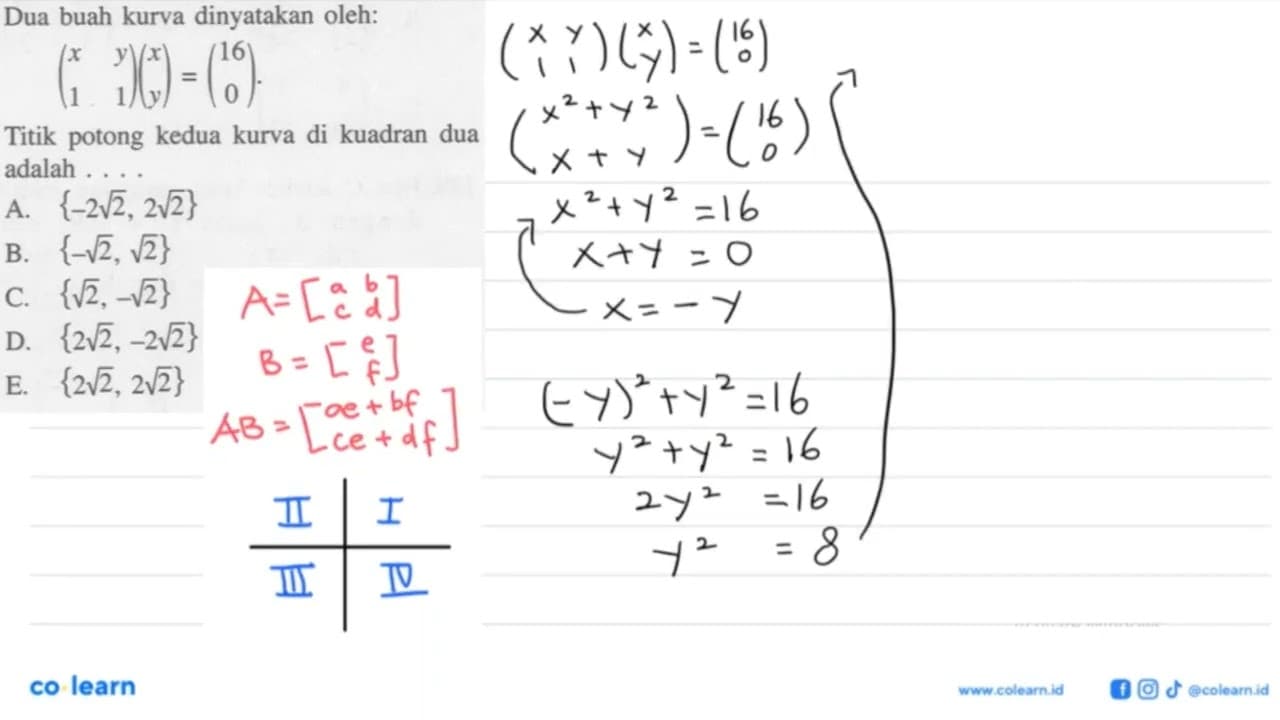 Dua buah kurva dinyatakan oleh:
(x y) (x) = (16)
(1 1) (y) (0).
Titik potong kedua kurva di kuadran dua
adalah . . . .
A. {–2√2, 2√2}
B. {–√2, √2}
C. {√2, –√2}
D. {2√2, –2√2}
E. {2√2, 2√2}
A = [a b]
[c d]
B = [e]
[f]
AB = [ae + bf]
[ce + df]
II I
III IV
(x y) (x) = (16)
(1 1) (y) (0)
(x² + y²) = (16)
(x + y) (0)
x² + y² = 16
x + y = 0
x = - y
(- y)² + y² = 16
y² + y² = 16
2y² = 16
y² = 8
co learn
www.colearn.id
@colearn.id